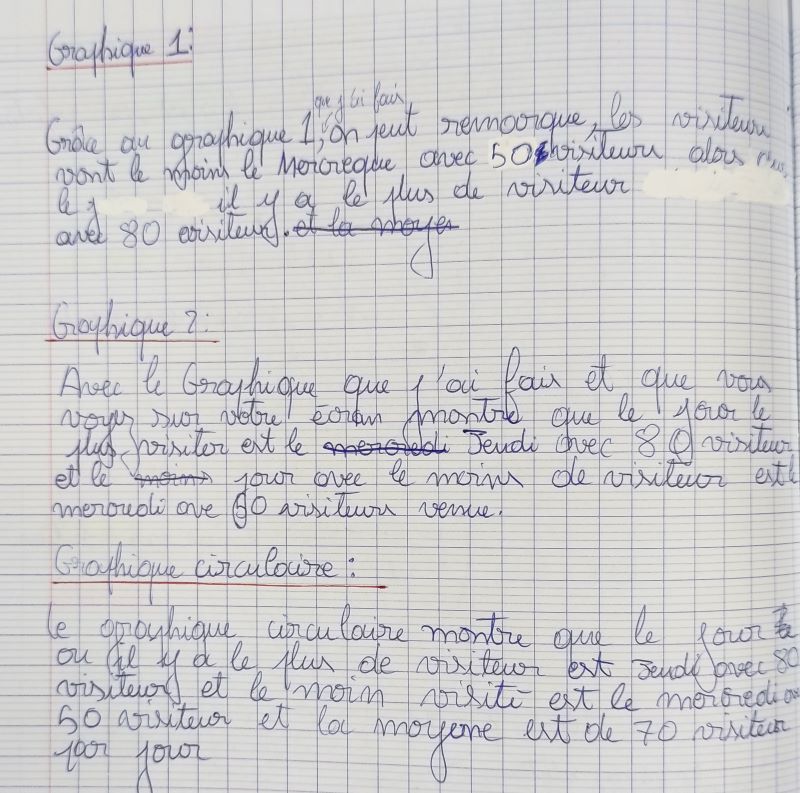 Graphique 1:
que j'ai fair
Grâce au graphique 1, on peut remarque, les visiteurs
vont le moins le Mercredque avec 50 visiteurs alors
le j il y a le plus de visiteur
avec 80 visiteurs. et la moyen
Graphique 2:
Avec le Graphique que j'ai fair et que vous
voyer sur votre écran montre que le jour le
plus visiter est le mercredi Jeudi avec 80 visiteur
et le moins jour avec le moins de visiteur est le
mercredi ave 60 visiteurs venue.
Graphique circulaire:
le graphique circulaire montre que le jour
ou il y a le plus de visiteur est Jeudi avec 80
visiteurs et le moin visité est le mercredi
50 visiteur et la moyene est de 70 visiteur
par jour